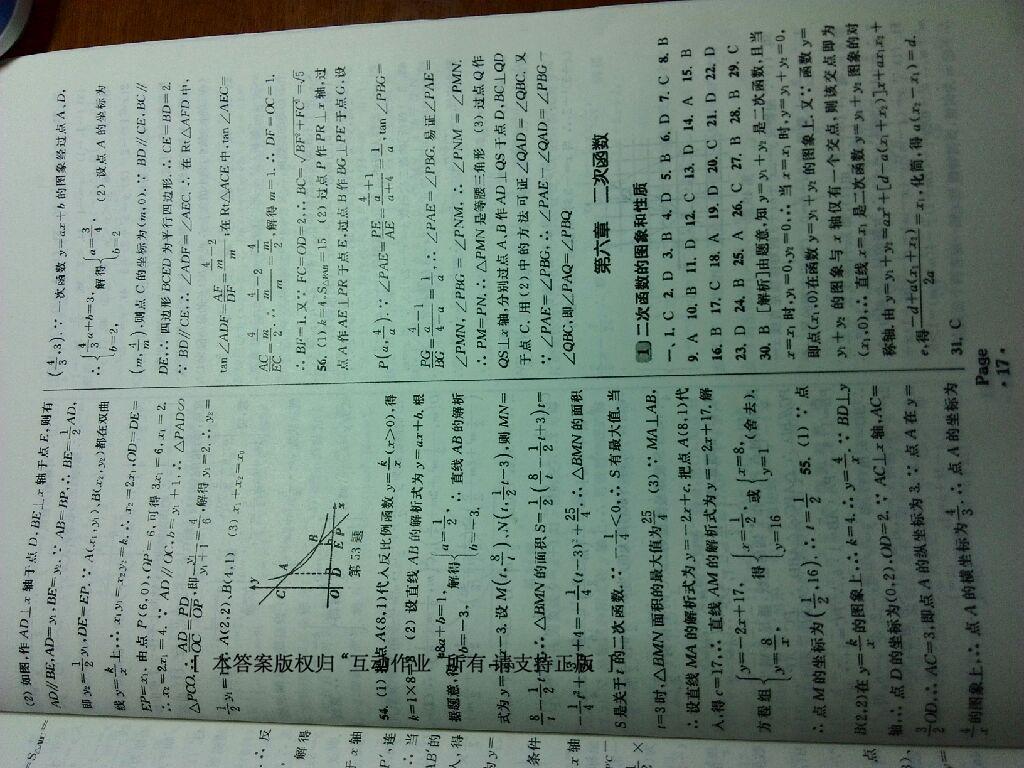 (2) 如图,作 AD⊥x 轴于点 D,BE⊥x 轴于点 E,则有
AD∥BE,AD=y₁,BE=y₂.∵ AB=BP,∴ BE=1/2 AD,
即 y₂=1/2 y₁,DE=EP.∵ A(x₁,y₁)、B(x₂,y₂)都在双曲
线 y=k/x 上,∴ x₁y₁=x₂y₂=k,∴ x₂=2x₁,OD=DE=
EP=x₁.由点 P(6,0),OP=6,可得 3x₁=6,x₁=2,
∴ x₂=2x₁=4.∵ AD∥OC,b=y₁+1,∴ △PAD∽
△PCO,∴ AD/OC=PD/OP,即 y₁/(y₁+1)=4/6,解得 y₁=2,∴ y₂=
1/2 y₁=1,∴ A(2,2),B(4,1) (3) x₁+x₂=x₀
y
C
A
B
O
D
E
P
x
第 53 题
54. (1) 把点 A(8,1)代入反比例函数 y=k/x(x>0),得
k=1×8=8 (2) 设直线 AB 的解析式为 y=ax+b,根
据题意,得{8a+b=1, b=-3. 解得{a=1/2, b=-3. ∴ 直线 AB 的解析
式为 y=1/2x-3.设 M(t,8/t),N(t,1/2t-3),则 MN=
8/t-1/2t+3,∴ △BMN 的面积 S=1/2(8/t-1/2t+3)t=
-1/4t²+3/2t+4=-1/4(t-3)²+25/4,∴ △BMN 的面积
S 是关于 t 的二次函数.∵ -1/4<0,∴ S 有最大值.当
t=3 时,△BMN 面积的最大值为 25/4 (3) ∵ MA⊥AB,
∴ 设直线 MA 的解析式为 y=-2x+c,把点 A(8,1)代
入,得 c=17,∴ 直线 AM 的解析式为 y=-2x+17.解
方程组{y=-2x+17, y=8/x, 得{x=1/2, y=16 或{x=8, y=1 (舍去),
∴ 点 M 的坐标为(1/2,16),∴ t=1/2 55. (1) ∵ 点
B(2,2)在 y=k/x 的图象上,∴ k=4,∴ y=4/x.∵ BD⊥y
轴,∴ 点 D 的坐标为(0,2),OD=2.∵ AC⊥x 轴,AC=
3/2OD,∴ AC=3,即点 A 的纵坐标为 3.∵ 点 A 在 y=
4/x 的图象上,∴ 点 A 的横坐标为 4/3,∴ 点 A 的坐标为
(4/3,3).∵ 一次函数 y=ax+b 的图象经过点 A、D,
∴ {4/3a+b=3, b=2, 解得{a=3/4, b=2 (2) 设点 A 的坐标为
(m,4/m),则点 C 的坐标为(m,0).∵ BD∥CE,BC∥
DE,∴ 四边形 BCED 为平行四边形,∴ CE=BD=2.
∵ BD∥CE,∴ ∠ADF=∠AEC,∴ 在 Rt△AFD 中,
tan∠ADF=AF/DF=(4/m-2)/m,在 Rt△ACE 中,tan∠AEC=
AC/EC=(4/m)/2,∴ (4/m-2)/m=(4/m)/2,解得 m=1,∴ DF=OC=1,
∴ BF=1.又∵ FC=OD=2,∴ BC=√(BF²+FC²)=√5
56. (1) k=4,S△PAB=15 (2) 过点 P 作 PR⊥x 轴,过
点 A 作 AE⊥PR 于点 E,过点 B 作 BG⊥PE 于点 G,设
P(a,4/a).∵ ∠PAE=PE/AE=(4/a+1)/(a+4)=1/a,tan∠PBG=
PG/BG=(4/a-1)/(4-a)=1/a,∴ ∠PAE=∠PBG.易证∠PAE=
∠PMN,∠PBG=∠PNM,∴ ∠PNM=∠PMN,
∴ PM=PN,∴ △PMN 是等腰三角形 (3) 过点 Q 作
QS⊥x 轴,分别过点 A、B 作 AD⊥QS 于点 D,BC⊥QD
于点 C.用(2)中的方法可证∠QAD=∠QBC.又
∵ ∠PAE=∠PBG,∴ ∠PAE-∠QAD=∠PBG-
∠QBC,即∠PAQ=∠PBQ
第六章 二次函数
1 二次函数的图象和性质
一、1. C 2. D 3. B 4. D 5. B 6. D 7. C 8. B
9. A 10. B 11. D 12. C 13. D 14. A 15. B
16. B 17. C 18. A 19. D 20. C 21. D 22. D
23. D 24. B 25. A 26. C 27. B 28. B 29. C
30. B [解析]由题意,知 y=y₁+y₂ 是二次函数,且当
x=x₁ 时,y₁=0,y₂=0,∴ 当 x=x₁ 时,y=y₁+y₂=0,
即点(x₁,0)在函数 y=y₁+y₂ 的图象上.又∵ 函数 y=
y₁+y₂ 的图象与 x 轴仅有一个交点,则该交点即为
(x₁,0),∴ 直线 x=x₁ 是二次函数 y=y₁+y₂ 图象的对
称轴.由 y=y₁+y₂=ax²+[d-a(x₁+x₂)]x+ax₁x₂+
e,得-(d-a(x₁+x₂))/2a=x₁,化简,得 a(x₂-x₁)=d.
31. C
Page
·17·
本答案版权归“互动作业”所有 请支持正版